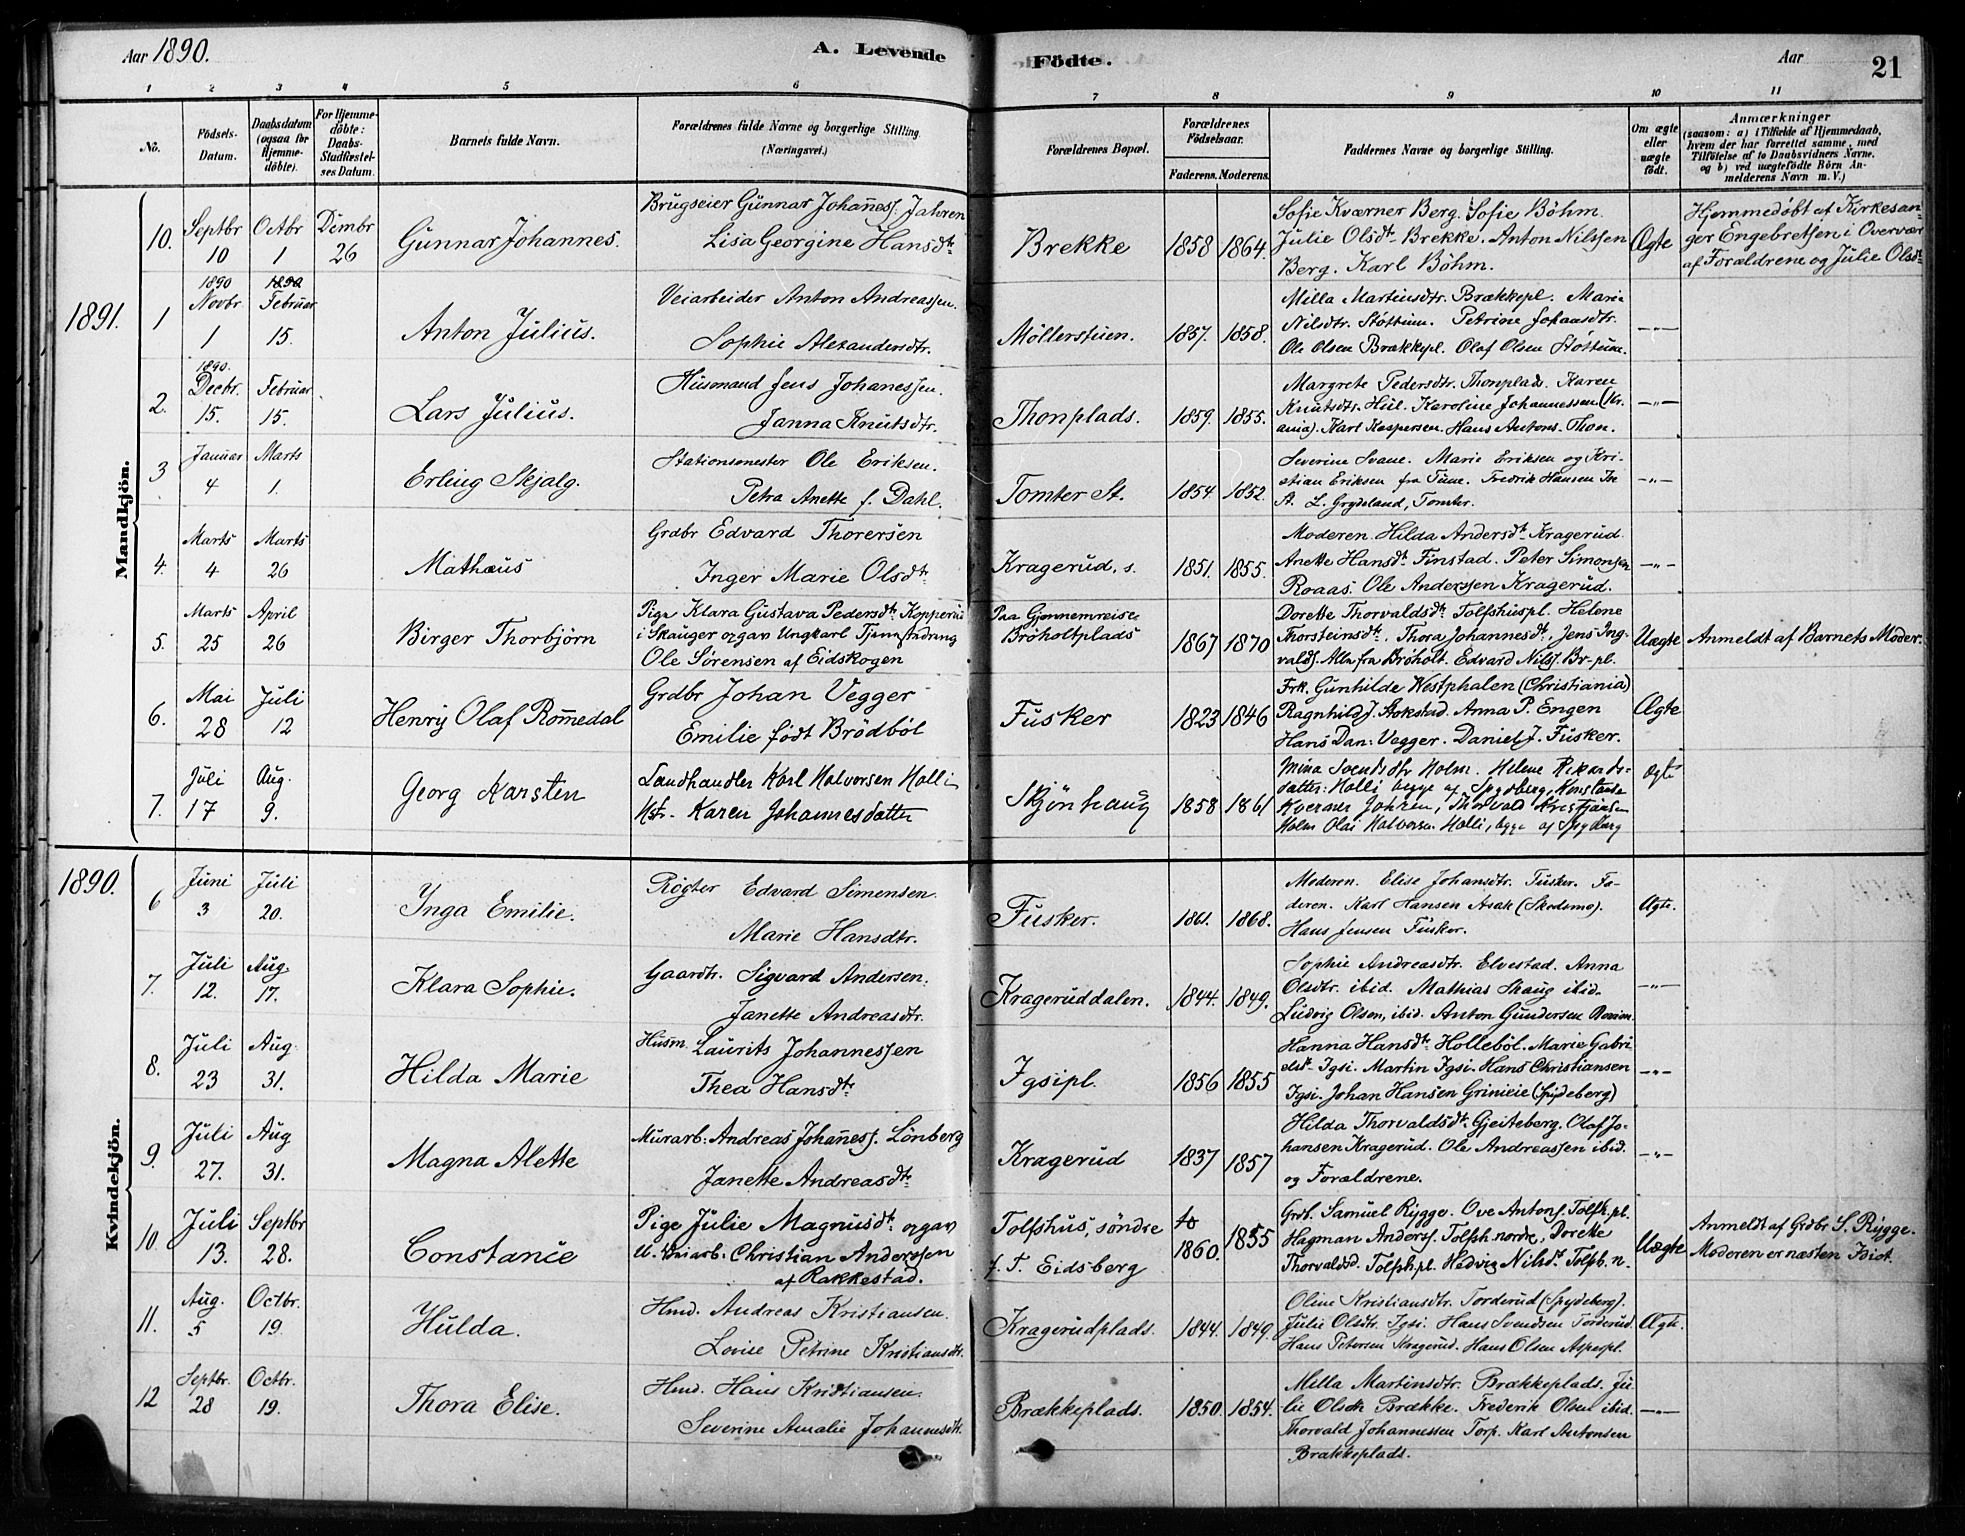 Aar 1890.
A. Levende Födte.
Aar
21
1 2 3 4 5 6 7 8 9 10 11
No.
Födsels-Datum.
Daabsdatum (ogsaa for Hjemmedöbte).
For Hjemmedöbte: Daabs-Stadfæstelses Datum.
Barnets fulde Navn.
Forældrenes fulde Navne og borgerlige Stilling. (Næringsvei.)
Forældrenes Bopæl.
Forældrenes Födselsaar.
Faderens. Moderens.
Faddernes Navne og borgerlige Stilling.
Om ægte eller uægte födt.
Anmærkninger
(saasom: a) i Tilfælde af Hjemmedaab, hvem der har forrettet samme, med Tilföielse af to Daabsvidners Navne, og b) ved uægtefödte Börn Anmelderens Navn m. V.)
Mandkjön.
10. Septbr 10
Octbr 1
Dcmbr 26
Gunnar Johannes.
Brugseier Gunnar Johannesf. Jahren
Lisa Georgine Hansdtr
Brekke
1858 1864.
Sofie Kværner Berg. Sofie Böhm.
Julie Olsdtr Brekke. Anton Nilssen
Berg. Karl Böhm.
Ægte
Hjemmedöbt af Kirkesan-
ger Engebretsen i Overvær
af Forældrene og Julie Olsdtr
1891.
1 1890 Novbr 1
1890 Februar 15.
Anton Julius.
Veiarbeider Anton Andreassen.
Sophie Alexandersdtr.
Möllerstuen.
1857. 1858.
Milla Martinsdtr. Brækkepl. Marie
Nilsdtr. Støttum. Petrine Johansdtr.
Ole Olsen Brækkepl. Olaf Olsen Støttum.
—"—
2. 1890. Decbr. 15.
Februar 15.
Lars Julius.
Husmand Jens Johanessen.
Janna Knutsdtr.
Thonplads.
1859. 1855.
Margrete Pedersdtr. Thonplads. Karen
Knutsdtr. Hul. Karoline Johannessen (Kr.
ania). Karl Kaspersen. Hans Antons. Thon.
—"—
3 Januar 4
Marts 1.
Erling Skjalg.
Stationsmester Ole Eriksen.
Petra Anette f. Dahl.
Tomter St.
1854. 1852.
Severine Svane. Marie Eriksen og Kri-
stian Eriksen fra Tune. Fredrik Hansen
St. L. Grydeland, Tomter.
—"—
4. Marts 4
Marts 26
Mathæus
Grdbr Edvard Thorersen
Inger Marie Olsdtr
Kragerud, s.
1851. 1855.
Moderen. Hilda Andersdtr Kragerud.
Anette Hansdtr Finstad. Peter Simonsen
Roaas. Ole Anderssen Kragerud.
—"—
5. Marts 25
April 26
Birger Thorbjörn
Pige Klara Gustava Pedersdtr Kopperud
i Skauger og gav Ungkarl
Ole Sörensen af Eidskogen
Paa Gjennemreise.
Bröholtplads
1867 1870
Dorette Thorvaldsdtr Tolfshuspl. Helene
Thorsteinsdtr. Thora Johannesdtr. Jens Ing-
valdf. Alle fra Bröholt. Edvard Nilsf. Br-pl.
Uægte
Anmeldt af Barnets Moder.
6. Mai 28
Juli 12
Henry Olaf Romedal
Grdbr Johan Vegger
Emilie födt Brödböl
Fusker
1823 1846
Frk. Gunhilde Westphalen (Christiania)
Ragnhild J. Stokstad. Anna P. Engen
Hans Dan: Vegger. Daniel J. Fusker.
Ægte
7. Juli 17
Aug. 9.
Georg Karsten
Landhandler Karl Halvorsen Holli
Hstr. Karen Johannesdatter
Skjönhaug
1858 1861
Mina Svendsdtr Holm. Helene Rikards-
datter: Holli begge af Spydberg, Konstanse
Kverner Johren, Thorvald Kristjansen
Holm Olai Halvorsen Holli, begge af Spydberg
Ægte
Kvindekjön.
1890.
6 Juni 3
Juli 20.
Inga Emilie.
Rögter Edvard Simensen.
Marie Hansdtr.
Fusker.
1861. 1868.
Moderen. Elise Johansdtr. Fusker. Fa-
deren. Karl Hansen Asak (Skedsmo).
Hans Jensen Fusker.
Ægte.
7. Juli 12.
Aug. 17.
Klara Sophie.
Gaardbr. Sigvard Andersen.
Janette Andreasdtr.
Krageruddalen.
1844. 1849.
Sophie Andreasdtr. Elvestad. Anna
Olsdtr. ibid. Mathias Skaug ibid.
Ludvig Olsen, ibid. Anton Gundersen
—"—
8. Juli 23
Aug. 31.
Hilda Marie
Husm. Laurits Johannessen
Thea Hansdtr
Igsipl.
1856 1855
Hanna Hansdtr Holleböl. Marie Gabri
elsdtr Igsi. Martin Igsi. Hans Christiansen
Igsi. Johan Hansen Grinieie (Spydeberg)
—"—
9. Juli 27.
Aug 31.
Magna Alette
Murarb: Andreas Johannesf. Lönberg
Janette Andreasdtr
Kragerud
1837 1857
Hilda Thorvaldsdtr Gjeiteberg. Olaf Jo-
hansen Kragerud. Ole Andreassen ibid.
og Forældrene.
—"—
10. Juli 13.
Septbr 28.
Constance
Pige Julie Magnusdtr og gav
U. Veiarb: Christian Anderssen
af Rakkestad.
Tolfshus, söndre
f. T. Eidsberg
1860. 1855
Grdb. Samuel Rygge. Ove Antonf. Tolfh.pl.
Hagman Andersf. Tolfsh. nordre, Dorette
Thorvaldsd. Tolfsh.pl. Hedvig Nilsdtr Tolfsh. n.
Uægte
Anmeldt af Grdbr. S. Rygge.
Moderen er næsten Idiot.
11. Aug. 5
Octbr. 19.
Hulda.
Hmd. Andreas Kristiansen.
Lovise Petrine Kristiansdtr.
Kragerudplads.
1844. 1849.
Oline Kristiansdtr. Torderud (Spydeberg).
Julie Olsdtr. Igsi. Hans Svendsen Torderud.
Hans Petersen Kragerud. Hans Olsen Aspespl.
Ægte.
12 Septbr. 28
Octbr. 19.
Thora Elise.
Hmd. Hans Kristiansen.
Severine Amalie Johannesdtr.
Brækkeplads.
1850. 1854.
Milla Martinsdtr. Brækkeplads. Ju-
lie Olsdtr Brække. Frederik Olsen ibid.
Thorvald Johannessen Torp. Karl Antonsen
Brækkeplads.
—"—